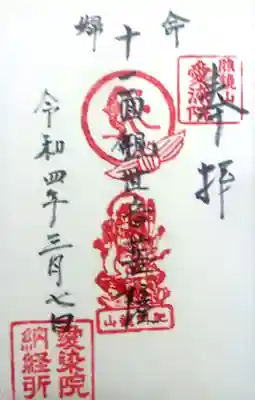 奉拝
愛染院
命婦
十一面観世音菩薩
令和四年三月七日
愛染院
納経所